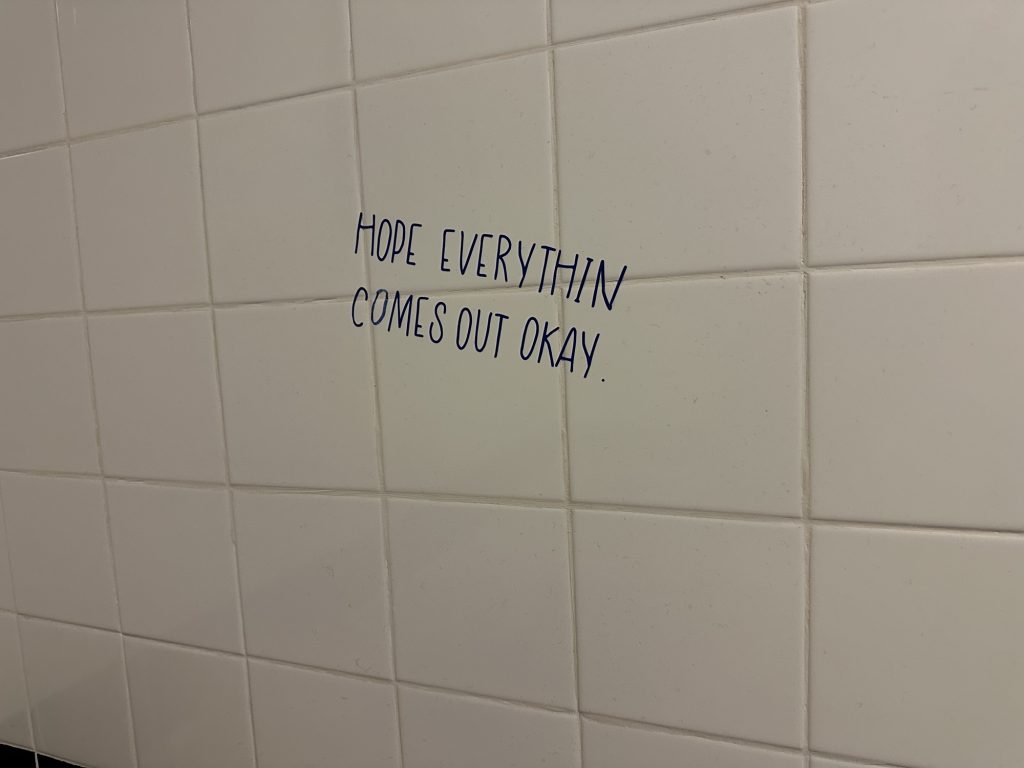 HOPE EVERYTHIN
COMES OUT OKAY.